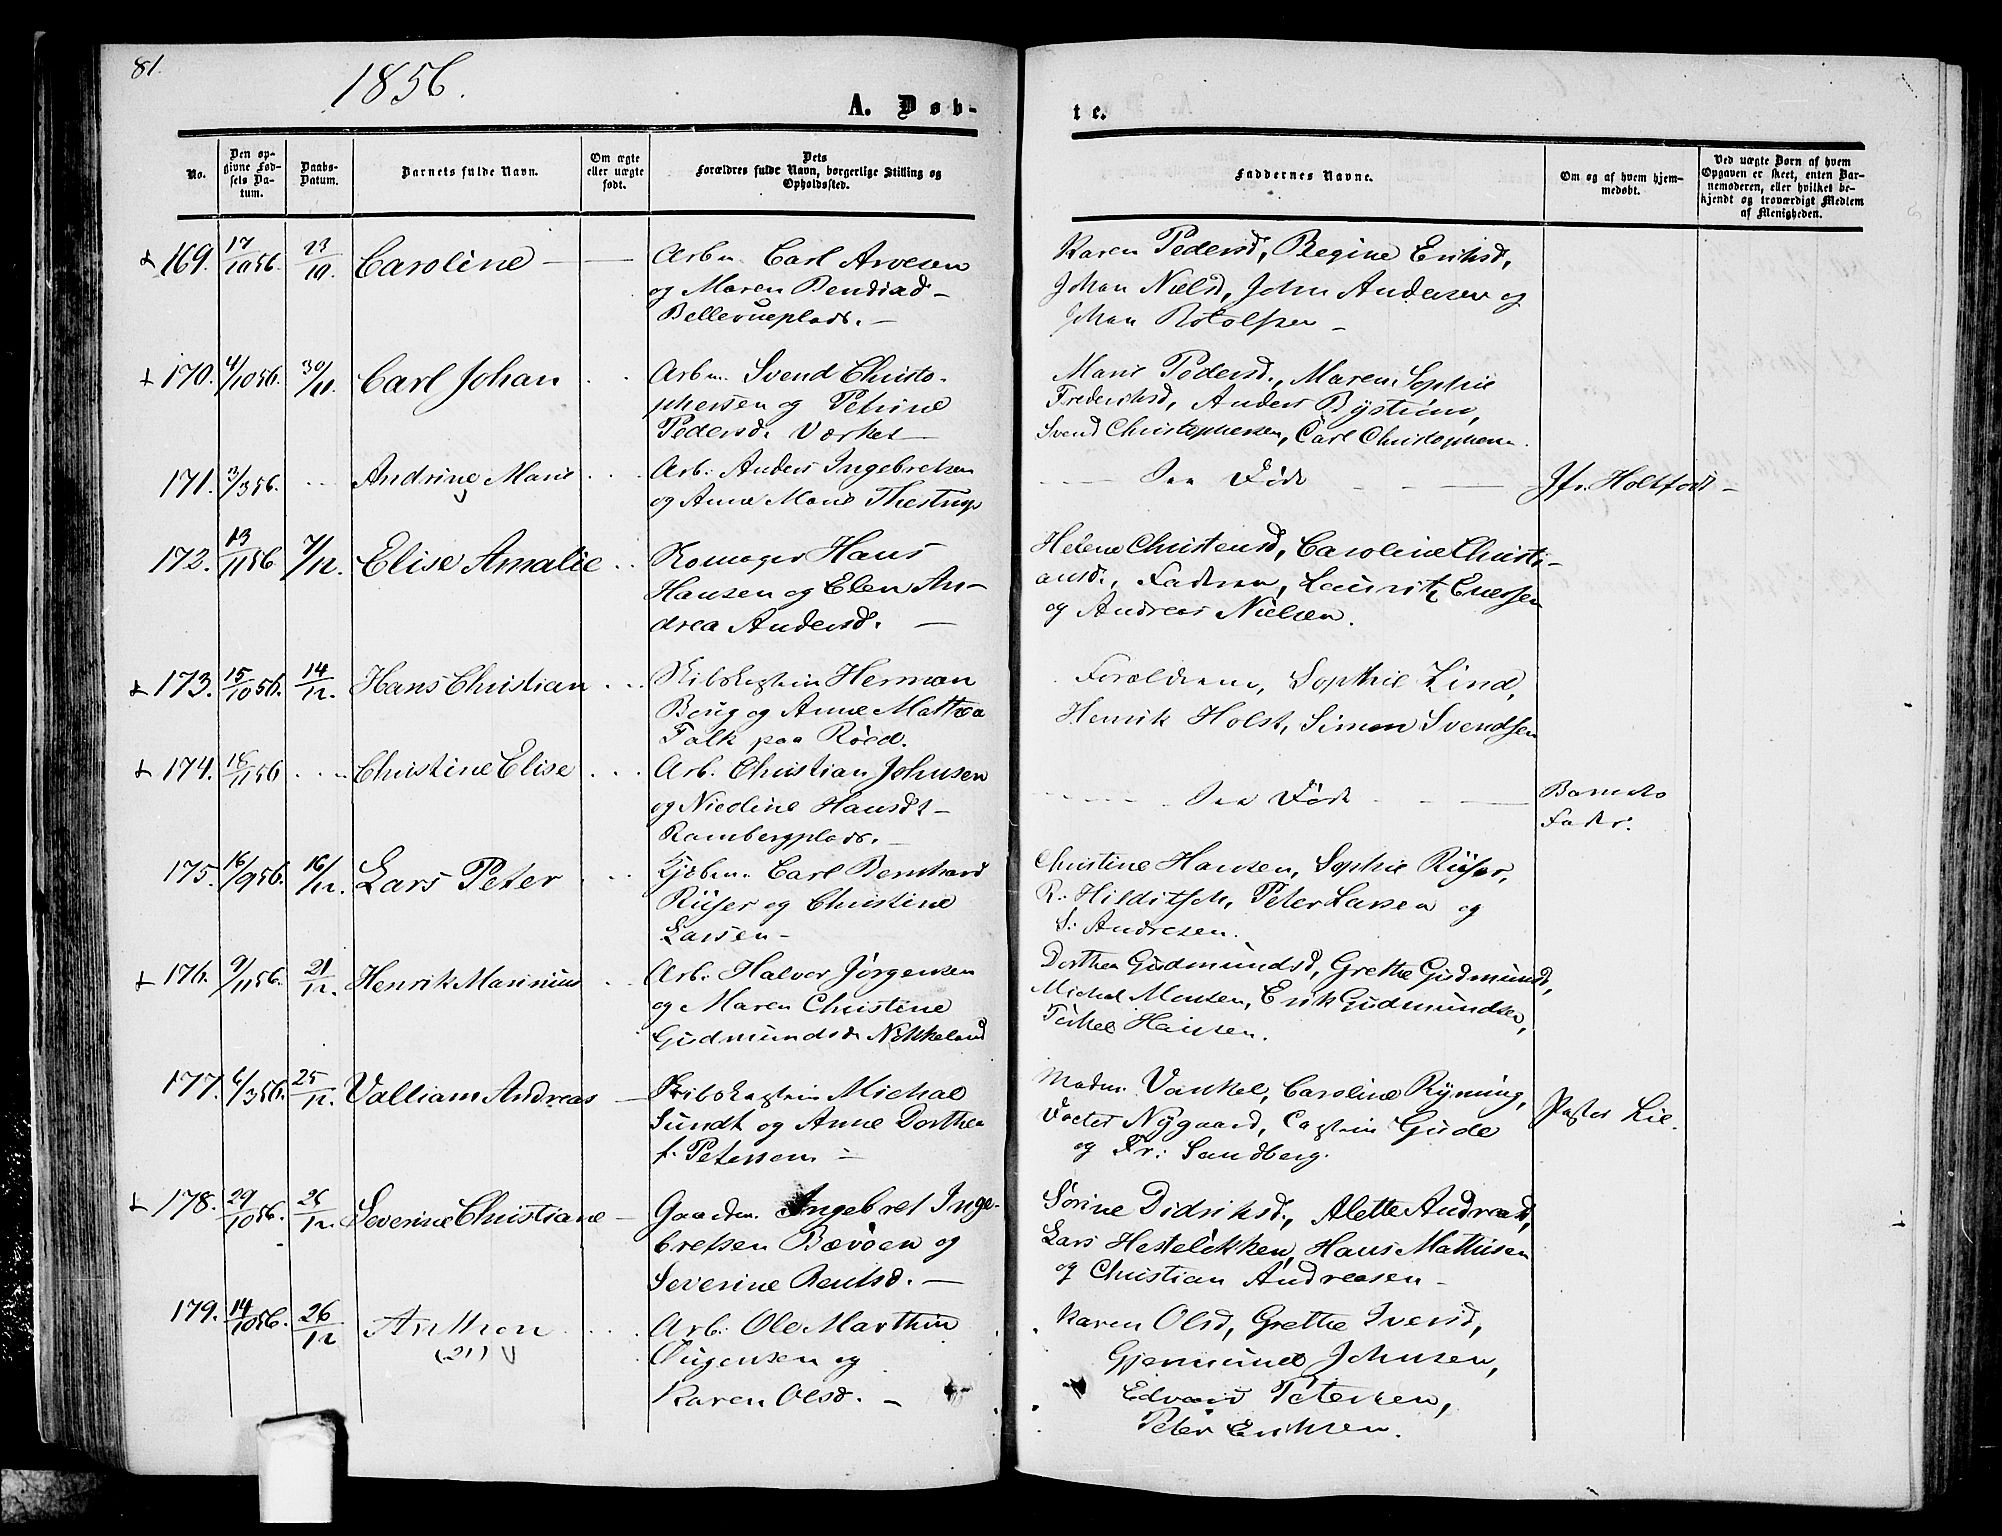 81.
1856.
A. Døb-
te.
No.
Den op-
givne Fød-
sels Da-
tum.
Daabs-
Datum.
Barnets fulde Navn.
Om ægte
eller uægte
født.
Dets
Forældres fulde Navn, borgerlige Stilling og
Opholdssted.
Faddernes Navne.
Om og af hvem hjem-
medøbt.
Ved uægte Børn af hvem
Opgaven er skeet, enten Bar-
nemoderen, eller hvilket be-
kjendt og troværdigt Medlem
af Menigheden.
169. 17/10 56. 23/10. Caroline
Arbm. Carl Arvesen
og Maren Bendixd
Bellevueplads.
Karen Pedersd, Regine Eriksd,
Johan Nielsd, John Andersen og
Johan Rotolfsen
170. 4/10 56. 30/11. Carl Johan
Arbm. Svend Christo-
phersen og Petrine
Pedersd. Værket
Marie Pedersd., Maren Sophie
Frederiksd, Anders Byström,
Svend Christophersen, Carl Christophersen.
171. 13/3 56. Andrine Marie
Arb. Anders Ingebretsen
og Anne Marie Thestrup
Død
Jfr. Holtfodt
172. 13/11 56 7/12. Elise Amalie
Skomager Hans
Hansen og Elen An-
drea Andersd.
Helene Christensd, Caroline Christi-
ansd., Faderen, Lauritz
og Andreas Nielsen.
173. 15/10 56. 14/12. Hans Christian
Skibskaptein Herman
Borg og Anne Mathea
Falk paa Röed.
Forældrene, Sophie Lind,
Henrik Holst, Simon Svendsen
174. 18/11 56 Christine Elise
Arb. Christian Johnsen
og Nicoline Hansdt
Rambergplads.
Død
Barnets
Fader.
175. 16/9 56. 16/12. Lars Peter
Kjøbm. Carl Bernhard
Rüser og Christine
Larsen
Christine Hansen, Sophie Rüser,
R. Hilditsch, Peter Larsen og
S. Andresen.
176. 9/11 56. 21/12. Henrik Marinius
Arb. Halvor Jørgensen
og Maren Christine
Gudmundsd Nikkeland
Dorthea Gudmundsd, Grethe Gudmundsd,
Michel Monsen, Erik Gudmundsen,
Torkel Hansen.
177. 6/3 56. 25/12. Valliam Andreas
Skibskaptein Michael
Sundt og Anne Dorthea
f. Petersen
Madm. Vankel, Caroline Ryning,
Docter Nygaard, Captein Gude
og Fr. Sandberg.
Pastor Lie.
178. 29/10 56. 26/12. Severine Christiane
Gaardm. Ingebret Inge-
bretsen Bævöen og
Severine Bentsd.
Sörine Didriksd., Alette Andreasd,
Lars Hestelökken, Hans Mathisen
og Christian Andreasen
179. 14/10 56. 26/12 Anthon
(21)
Arb. Ole Marthin
og
Karen Olsd.
Karen Olsd, Grethe Iversd,
Gjermund Johnsen,
Edvard Petersen,
Peter Eriksen.